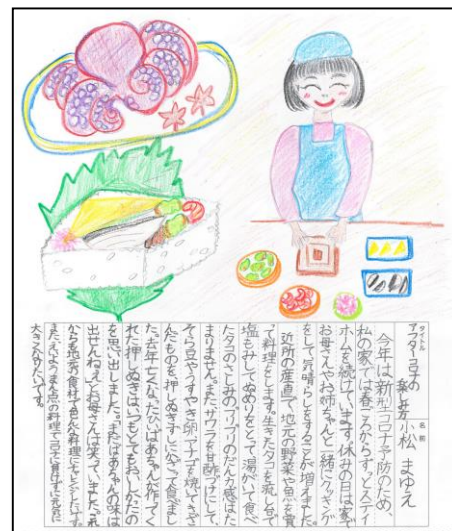 タイトル
アフターコロナの楽しみ方
名前
小松 まゆえ
今年は新型コロナ予防のため、
私の家では春ごろからずっとステイ
ホームを続けています。休みの日は家で
お母さんやお姉ちゃんと一緒にクッキング
をして気晴らしをすることが増えました。
近所の産直で、地元の野菜や魚を買
って料理をします。生きたタコを流し台で
塩もみしてぬめりをとって、湯がいて食べ
たタコのさしみのプリプリのだんカ感はた
まりません。またサワラを甘酢づけにして、
そら豆やうすやき卵、アナゴを焼いてきざ
んだものを、押しぬきずしに作って食べまし
た。去年亡くなったひいばあちゃんが作ってく
れた押しぬきはいつもとてもおいしかったの
を思い出しました。「まだばあちゃんの味は
出せんねえ」とお母さんは笑っていました。これ
からも地元の食材で色んな料理にチャレンジしたいです。
またえいようまん点の料理でコロナに負けずに元気に
大きくなりたいです。